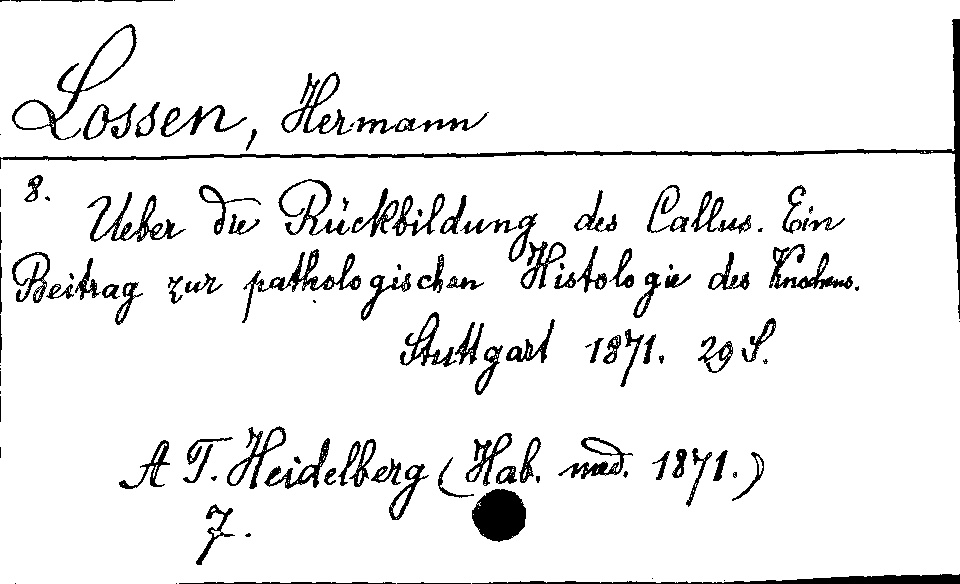 Lossen, Hermann
8.
Ueber die Rückbildung des Callus. Ein
Beitrag zur pathologischen Histologie des Knochens.
Stuttgart 1871. 29 S.
A T. Heidelberg (Hab. med. 1871.)
7.